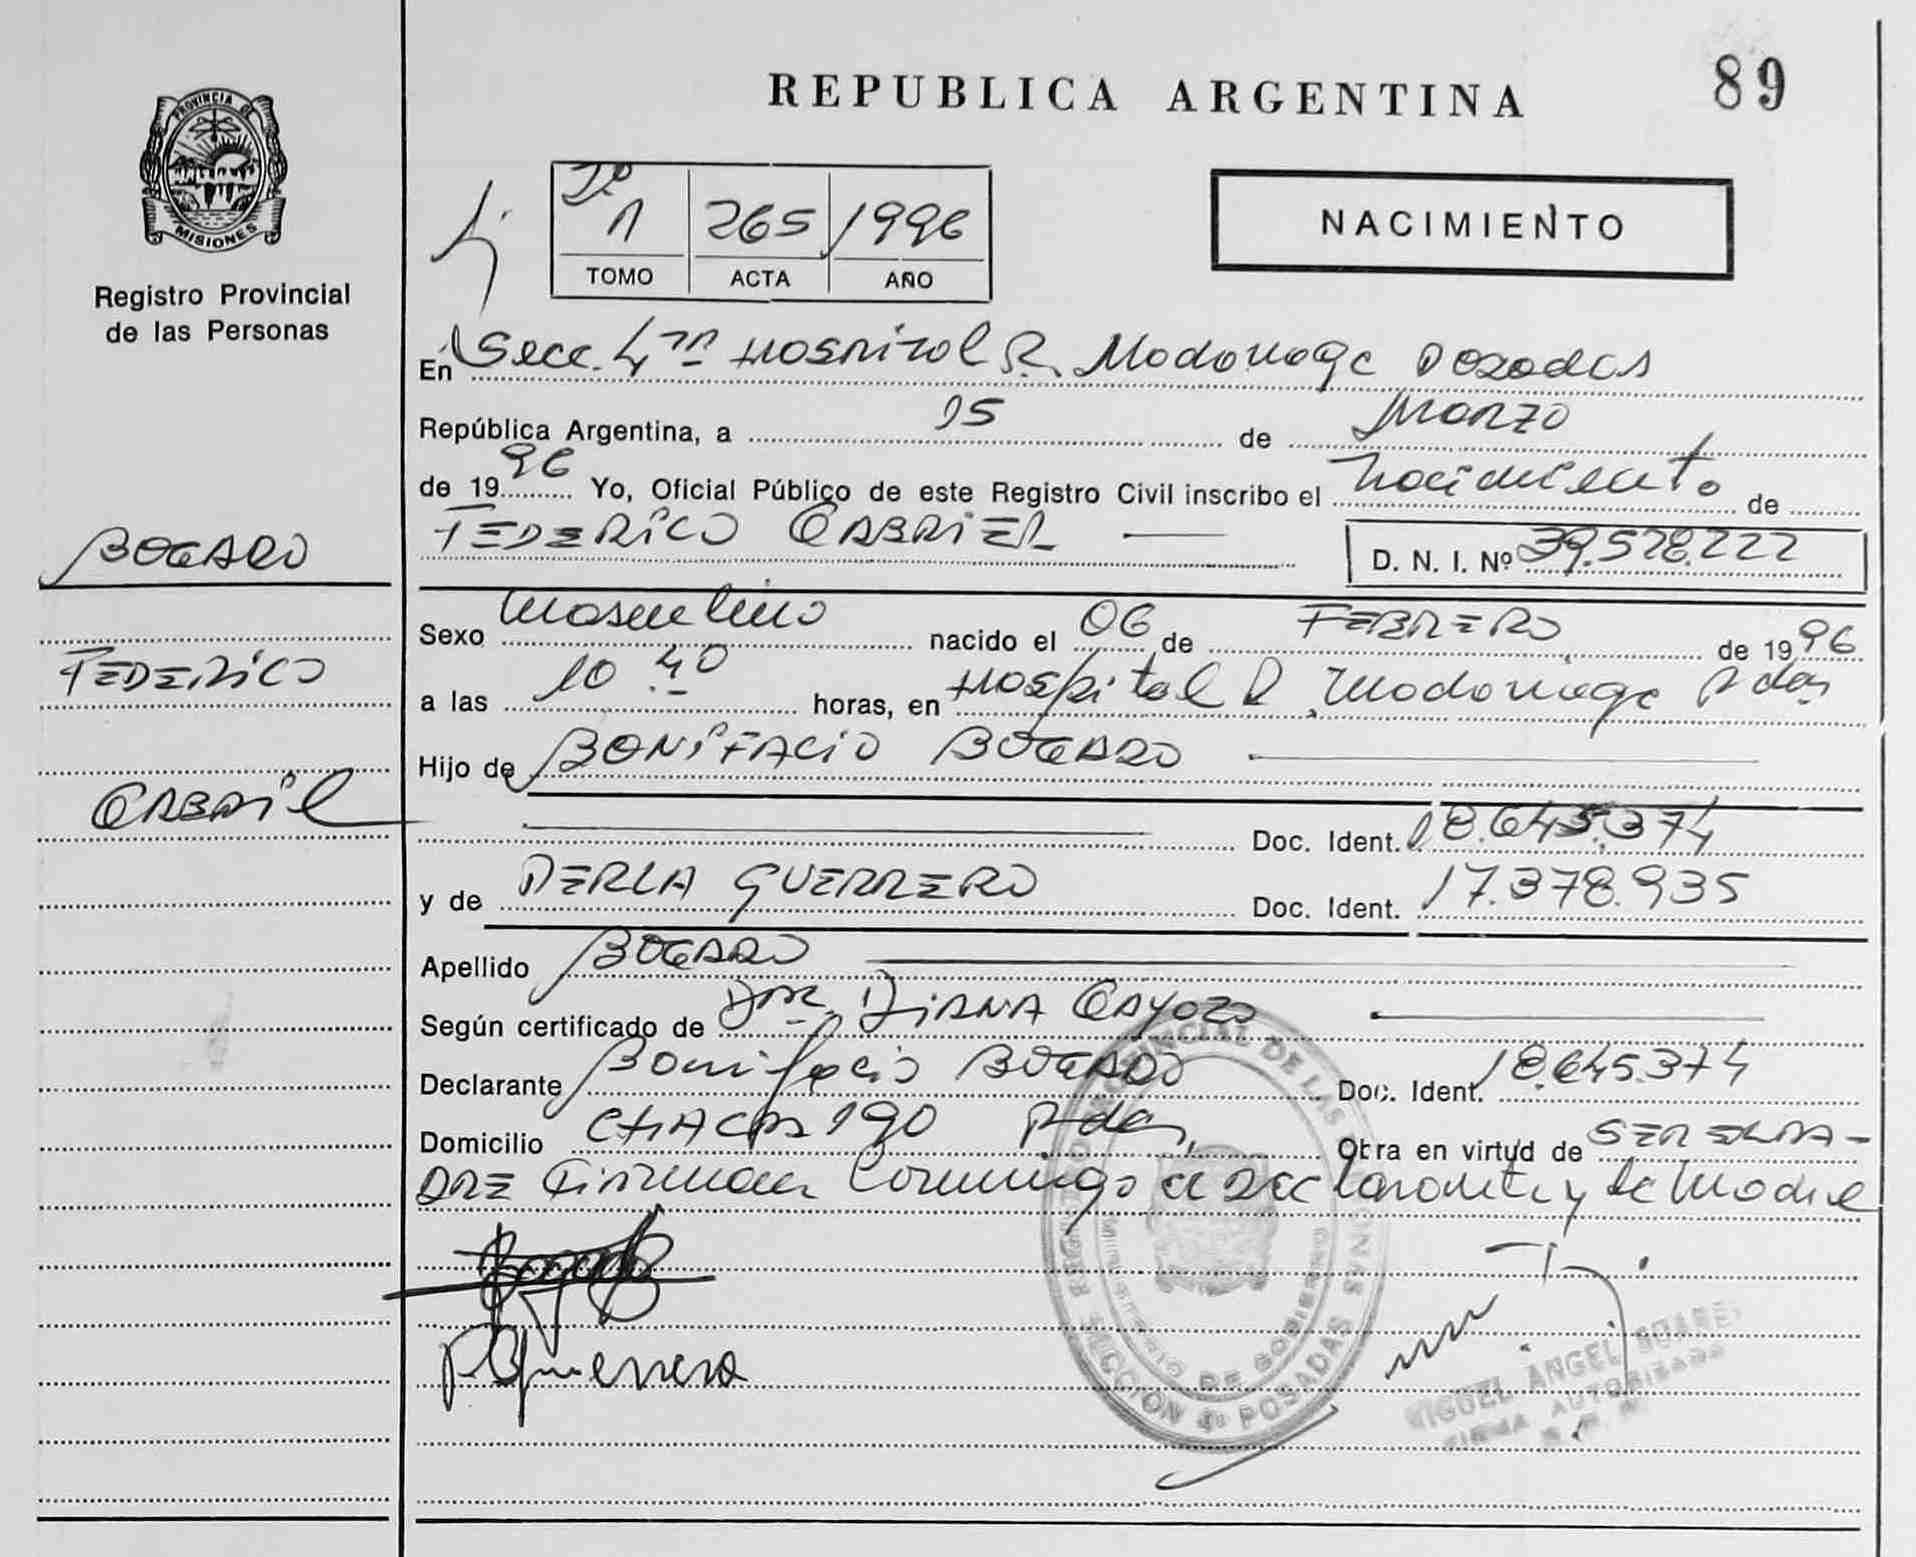 REPUBLICA ARGENTINA
89
PROVINCIA DE
MISIONES
Registro Provincial
de las Personas
Tº 1 265 1996
TOMO ACTA AÑO
NACIMIENTO
En Secc. 4ta Hospital R. Madariaga Posadas
República Argentina, a 15 de Marzo
de 1996 Yo, Oficial Público de este Registro Civil inscribo el nacimiento de
FEDERICO GABRIEL D. N. I. Nº 39.528.222
BOGADO
FEDERICO
GABRIEL
Sexo masculino nacido el 06 de FEBRERO de 1996
a las 10.40 horas, en Hospital R. Madariaga Pdas
Hijo de BONIFACIO BOGADO
Doc. Ident. 18.645.374
y de PERLA GUERRERO Doc. Ident. 17.378.935
Apellido BOGADO
Según certificado de Dra. DIANA GAYOZO
Declarante Bonifacio BOGADO Doc. Ident. 18.645.374
Domicilio CHACRA 190 Pdas, Otra en virtud de SER EL PA-
DRE Firman Conmigo el Declarante y la Madre
PGuerrero
REGISTRO PROVINCIAL DE LAS PERSONAS
MINISTERIO DE GOBIERNO
SECCION 4ª POSADAS
MIGUEL ANGEL SUAREZ
FIRMA AUTORIZADA